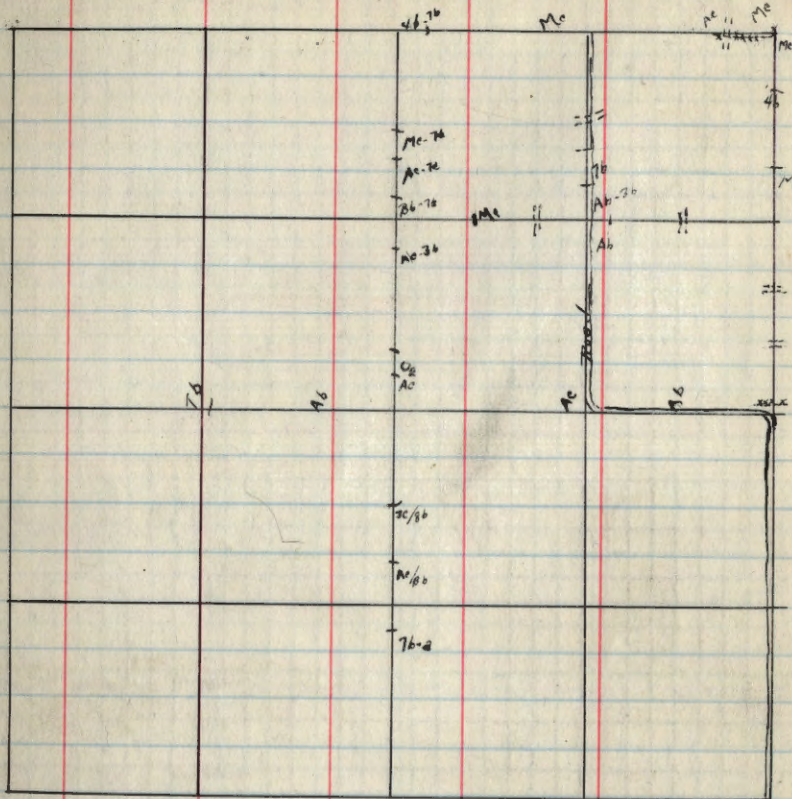 4b-7b
Mc
Mc
Mc
4b
Mc-7b
Ac-7c
7b
Bb-7b
Ab-3b
Mc
Ab
Ac-3b
Road
Ac
7b
Ab
Ac
Ab
7c/8b
Ac/8b
7b-a